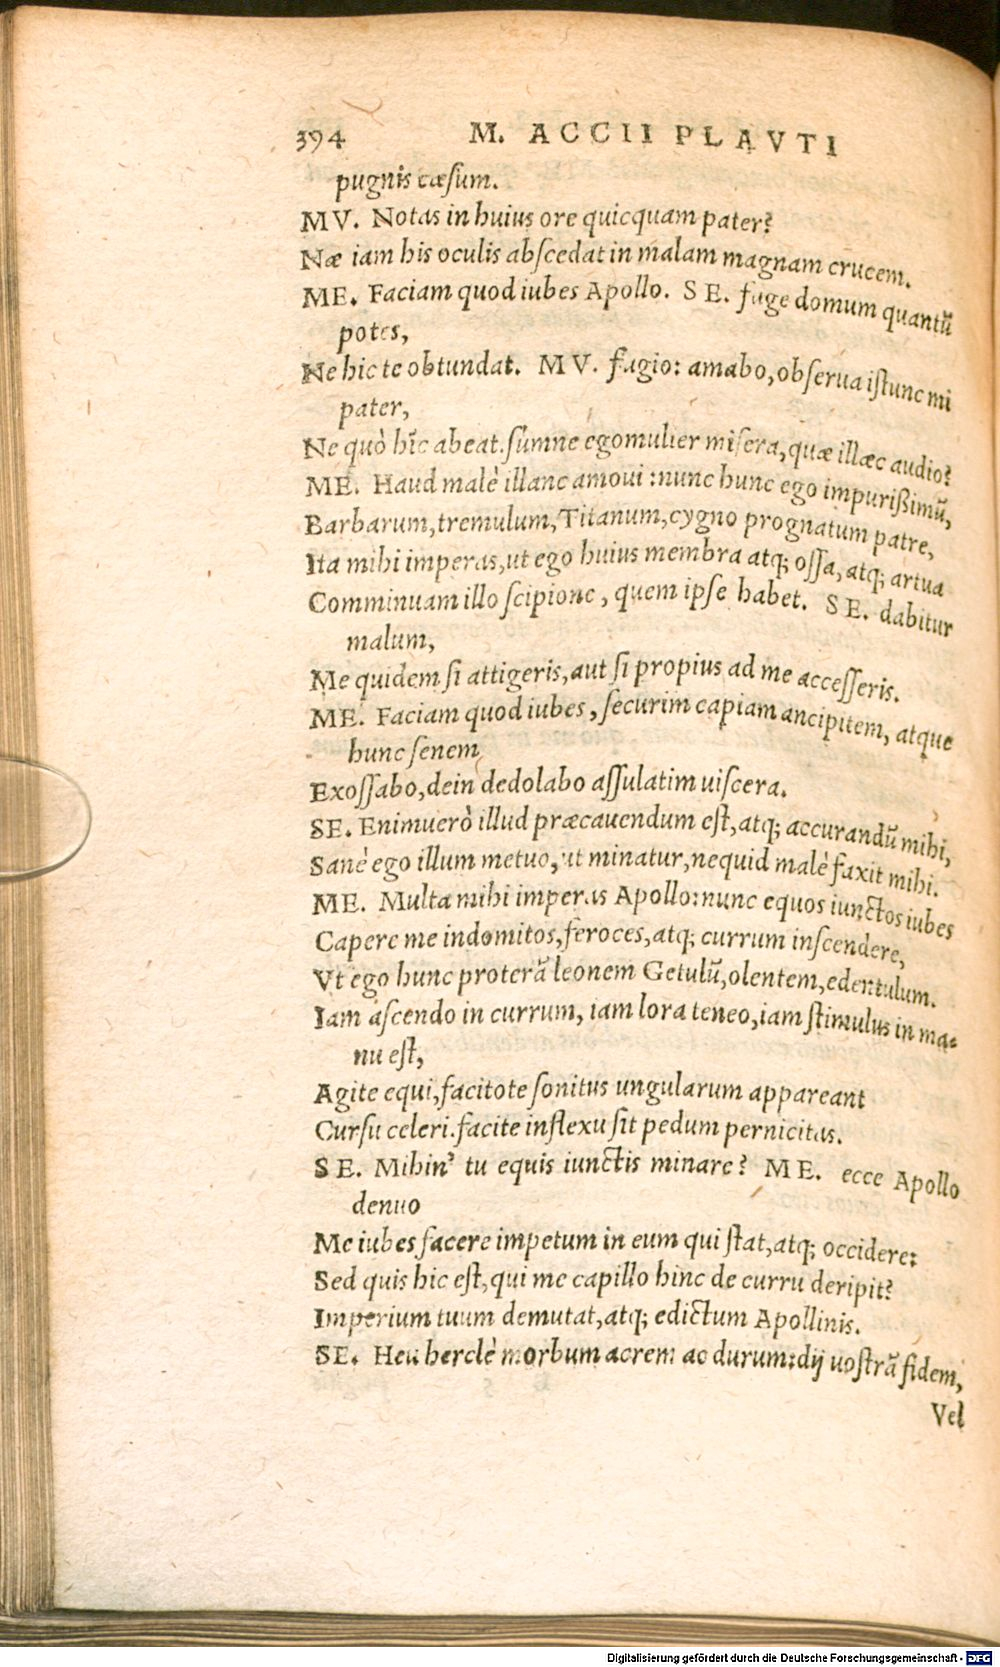 394 M. ACCII PLAVTI
pugnis cæsum.
MV. Notas in huius ore quicquam pater?
Næ iam his oculis abscedat in malam magnam crucem.
ME. Faciam quod iubes Apollo. SE. fuge domum quantũ
potes,
Ne hic te obtundat. MV. fugio: amabo, obserua istunc mi
pater,
Ne quò hĩc abeat. súmne ego mulier misera, quæ illæc audio?
ME. Haud malè illanc amoui: nunc hunc ego impurißimũ,
Barbarum, tremulum, Titanum, cygno prognatum patre,
Ita mihi imperas, ut ego huius membra atq; ossa, atq; artua
Comminuam illo scipione, quem ipse habet. SE. dabitur
malum,
Me quidem si attigeris, aut si propius ad me accesseris.
ME. Faciam quod iubes, securim capiam ancipitem, atque
hunc senem
Exossabo, dein dedolabo assulatim uiscera.
SE. Enimuerò illud præcauendum est, atq; accurandũ mihi,
Sanè ego illum metuo, ut minatur, nequid malè faxit mihi.
ME. Multa mihi imperas Apollo: nunc equos iunctos iubes
Capere me indomitos, feroces, atq; currum inscendere,
Vt ego hunc proterã leonem Getulũ, olentem, edentulum.
Iam ascendo in currum, iam lora teneo, iam stimulus in ma-
nu est,
Agite equi, facitote sonitus ungularum appareant
Cursu celeri. facite inflexu sit pedum pernicitas.
SE. Mihin' tu equis iunctis minare? ME. ecce Apollo
denuo
Me iubes facere impetum in eum qui stat, atq; occidere:
Sed quis hic est, qui me capillo hinc de curru deripit?
Imperium tuum demutat, atq; edictum Apollinis.
SE. Heu herclè morbum acrem ac durum: dij uostrã fidem,
Vel
Digitalisierung gefördert durch die Deutsche Forschungsgemeinschaft - DFG